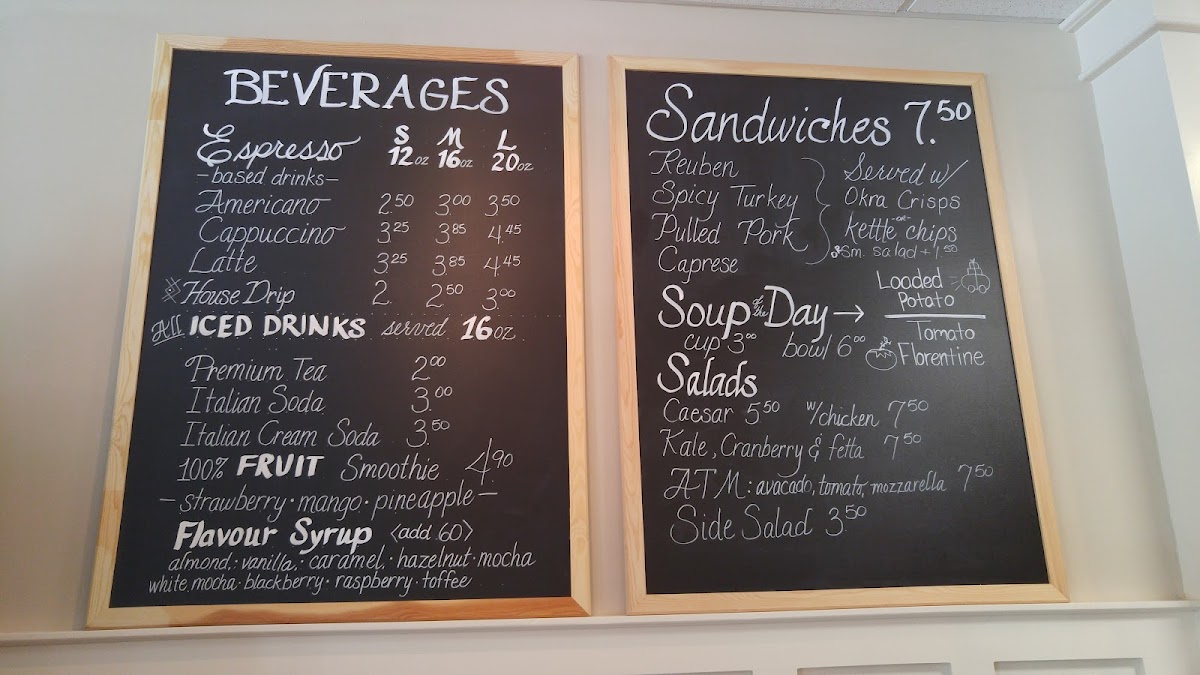 BEVERAGES
Espresso S M L
12oz 16oz 20oz
-based drinks-
Americano 2.50 3.00 3.50
Cappuccino 3.25 3.85 4.45
Latte 3.25 3.85 4.45
House Drip 2. 2.50 3.00
All ICED DRINKS served 16oz
Premium Tea 2.00
Italian Soda 3.00
Italian Cream Soda 3.50
100% FRUIT Smoothie 4.90
- strawberry · mango · pineapple -
Flavour Syrup <add .60>
almond · vanilla · caramel · hazelnut · mocha
white mocha · blackberry · raspberry · toffee
Sandwiches 7.50
Reuben
Spicy Turkey
Pulled Pork
Caprese
Served w/
Okra Crisps
-or-
kettle chips
Sm. salad + 1.50
Soup of the Day →
cup 3.00 bowl 6.00
Loaded
Potato
Tomato
Florentine
Salads
Caesar 5.50 w/chicken 7.50
Kale, Cranberry & fetta 7.50
ATM: avacado, tomato, mozzarella 7.50
Side Salad 3.50